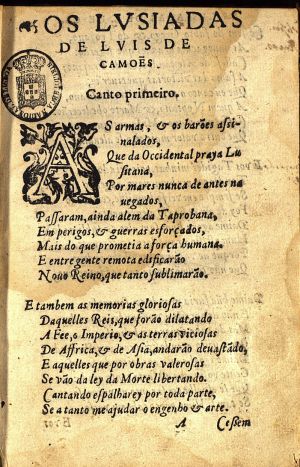 OS LVSIADAS
DE LVIS DE
CAMOËS.
Canto primeiro.
AS armas, & os barões assi-
nalados,
Que da Occidental praya Lu
sitana,
Por mares nunca de antes na
uegados,
Passaram, ainda alem da Taprobana,
Em perigos, & guerras esforçados,
Mais do que prometia a força humana.
E entre gente remota edificarão
Nouo Reino, que tanto sublimarão.
E tambem as memorias gloriosas
Daquelles Reis, que forão dilatando
A Fee, o Imperio, & as terras viciosas
De Affrica, & de Asia, andarão deuastãdo,
E aquelles que por obras valerosas
Se vão da ley da Morte libertando.
Cantando espalharey por toda parte,
Se a tanto me ajudar o engenho & arte.
A Cessem